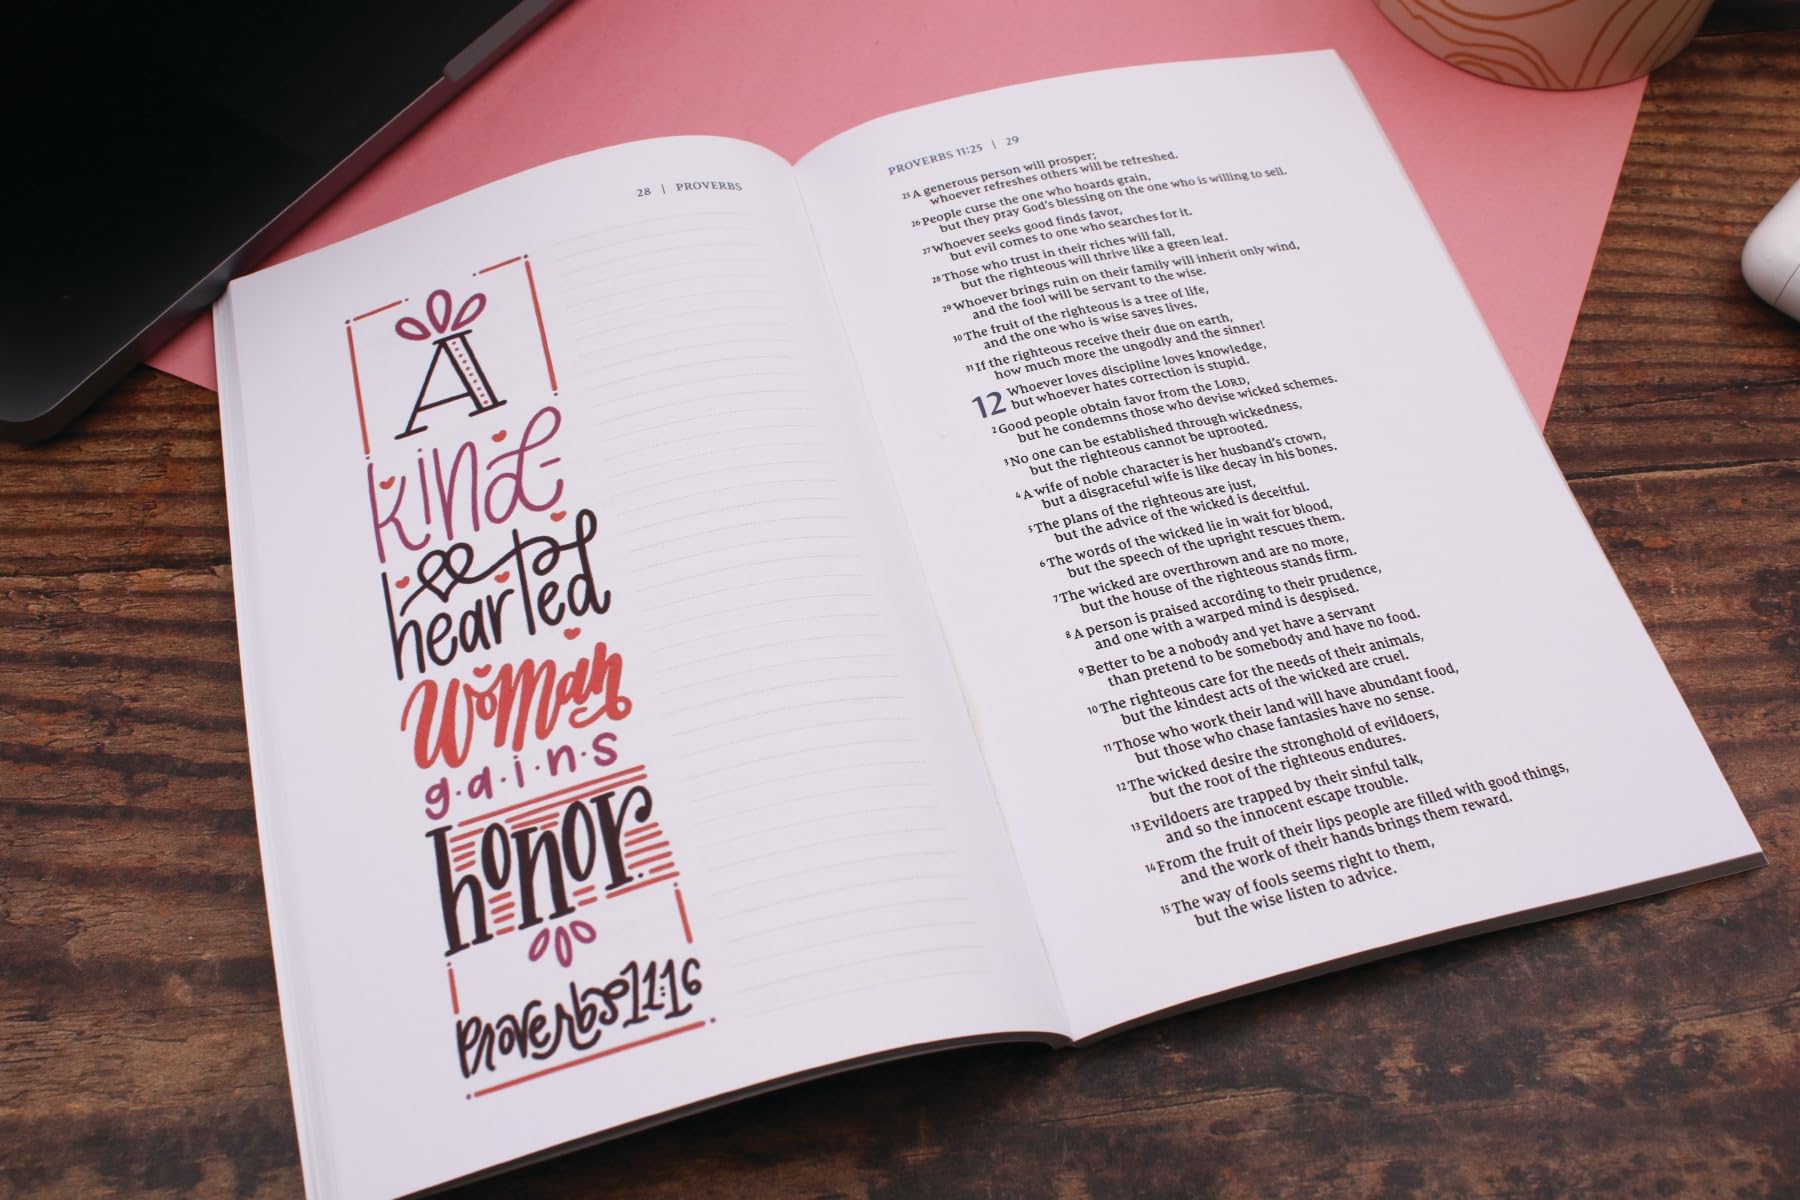 28 | PROVERBS
A
kind-
hearted
Woman
g.a.i.n.s
honor.
Proverbs 11:16
PROVERBS 11:25 | 29
25 A generous person will prosper;
whoever refreshes others will be refreshed.
26 People curse the one who hoards grain,
but they pray God's blessing on the one who is willing to sell.
27 Whoever seeks good finds favor,
but evil comes to one who searches for it.
28 Those who trust in their riches will fall,
but the righteous will thrive like a green leaf.
29 Whoever brings ruin on their family will inherit only wind,
and the fool will be servant to the wise.
30 The fruit of the righteous is a tree of life,
and the one who is wise saves lives.
31 If the righteous receive their due on earth,
how much more the ungodly and the sinner!
12 Whoever loves discipline loves knowledge,
but whoever hates correction is stupid.
2 Good people obtain favor from the LORD,
but he condemns those who devise wicked schemes.
3 No one can be established through wickedness,
but the righteous cannot be uprooted.
4 A wife of noble character is her husband's crown,
but a disgraceful wife is like decay in his bones.
5 The plans of the righteous are just,
but the advice of the wicked is deceitful.
6 The words of the wicked lie in wait for blood,
but the speech of the upright rescues them.
7 The wicked are overthrown and are no more,
but the house of the righteous stands firm.
8 A person is praised according to their prudence,
and one with a warped mind is despised.
9 Better to be a nobody and yet have a servant
than pretend to be somebody and have no food.
10 The righteous care for the needs of their animals,
but the kindest acts of the wicked are cruel.
11 Those who work their land will have abundant food,
but those who chase fantasies have no sense.
12 The wicked desire the stronghold of evildoers,
but the root of the righteous endures.
13 Evildoers are trapped by their sinful talk,
and so the innocent escape trouble.
14 From the fruit of their lips people are filled with good things,
and the work of their hands brings them reward.
15 The way of fools seems right to them,
but the wise listen to advice.